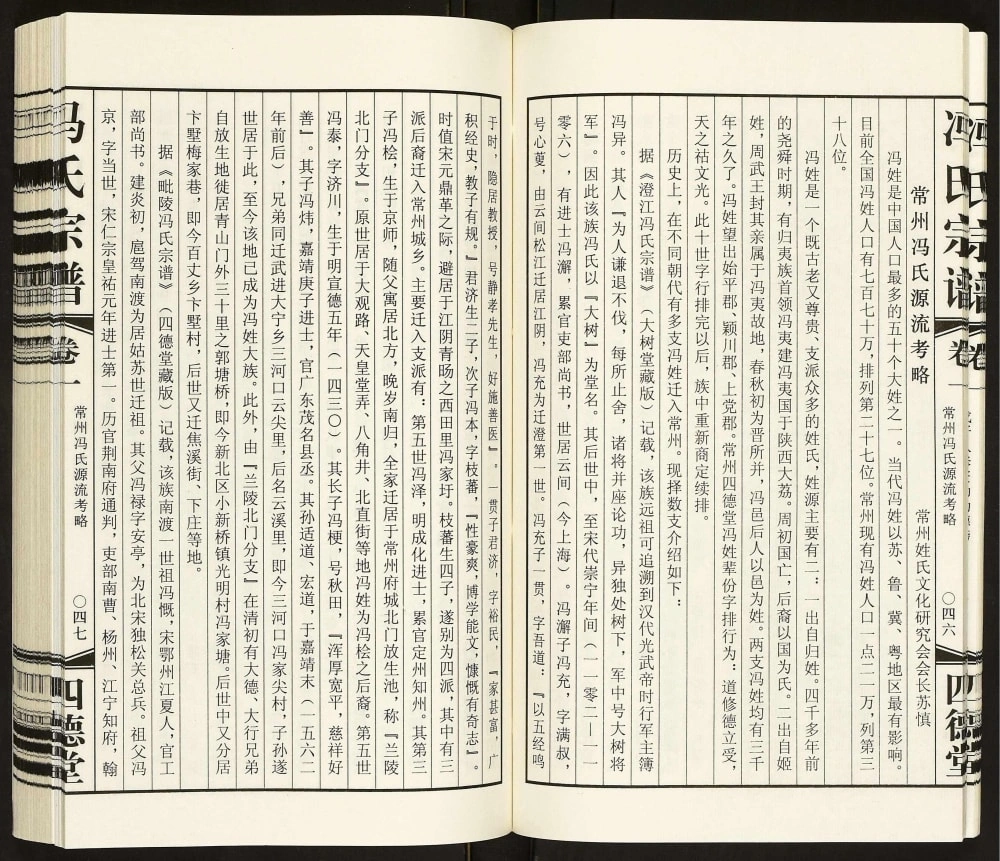 冯氏宗谱
卷一
常州冯氏源流考略
〇四六
四德堂
常州冯氏源流考略
常州姓氏文化研究会会长苏慎
冯姓是中国人口最多的五十个大姓之一。当代冯姓以苏、鲁、冀、粤地区最有影响。
目前全国冯姓人口有七百七十万，排列第二十七位。常州现有冯姓人口一点二一万，列第三
十八位。
冯姓是一个既古老又尊贵、支派众多的姓氏，姓源主要有二：一出自归姓。四千多年前
的尧舜时期，有归夷族首领冯夷建冯夷国于陕西大荔。周初国亡，后裔以国为氏。二出自姬
姓，周武王封其亲属于冯夷故地，春秋初为晋所并，冯邑后人以邑为姓。两支冯姓均有三千
年之久了。冯姓望出始平郡、颖川郡、上党郡。常州四德堂冯姓辈份字排行为：道修德立受，
天之祜文光。此十世字行排完以后，族中重新商定续排。
历史上，在不同朝代有多支冯姓迁入常州。现择数支介绍如下：
据《澄江冯氏宗谱》（大树堂藏版）记载，该族远祖可追溯到汉代光武帝时行军主簿
冯异。其人『为人谦退不伐，每所止舍，诸将并座论功，异独处树下，军中号大树将
军』。因此该族冯氏以『大树』为堂名。其后世中，至宋代崇宁年间（一一零二—一一
零六），有进士冯澥，累官吏部尚书，世居云间（今上海）。冯澥子冯充，字满叔，
号心蓃，由云间松江迁居江阴，冯充为迁澄第一世。冯充子一贯，字吾道：『以五经鸣
于时，隐居教授，号静孝先生，好施善医』。一贯子君济，字裕民，『家甚富，广
积经史，教子有规。』君济生二子，次子冯本，字枝蕃，『性豪爽，博学能文，慷慨有奇志』。
时值宋元鼎革之际，避居于江阴青旸之西田里冯家圩。枝蕃生四子，遂别为四派，其中有三
派后裔迁入常州城乡。主要迁入支派有：第五世冯泽，明成化进士，累官定州知州。其第三
子冯桧，生于京师，随父寓居北方，晚岁南归，全家迁居于常州府城北门放生池，称『兰陵
北门分支』。原世居于大观路、天皇堂弄、八角井、北直街等地冯姓为冯桧之后裔。第五世
冯泰，字济川，生于明宣德五年（一四三〇）。其长子冯梗，号秋田，『浑厚宽平，慈祥好
善』。其子冯炜，嘉靖庚子进士，官广东茂名县丞。其孙适道、宏道，于嘉靖末（一五六二
年前后），兄弟同迁武进大宁乡三河口云尖里，后名云溪里，即今三河口冯家尖村，子孙遂
世居于此，至今该地已成为冯姓大族。此外，由『兰陵北门分支』在清初有大德、大行兄弟
自放生地徙居青山门外三十里之郭塘桥，即今新北区小新桥镇光明村冯家塘。后世中又分居
卞墅梅家巷，即今百丈乡卞墅村，后世又迁焦溪街、下庄等地。
据《毗陵冯氏宗谱》（四德堂藏版）记载，该族南渡一世祖冯慨，宋鄂州江夏人，官工
部尚书。建炎初，扈驾南渡为居姑苏世迁祖。其父冯禄字安亭，为北宋独松关总兵。祖父冯
京，字当世，宋仁宗皇祐元年进士第一。历官荆南府通判，吏部南曹、杨州、江宁知府，翰
冯氏宗谱
卷一
常州冯氏源流考略
〇四七
四德堂